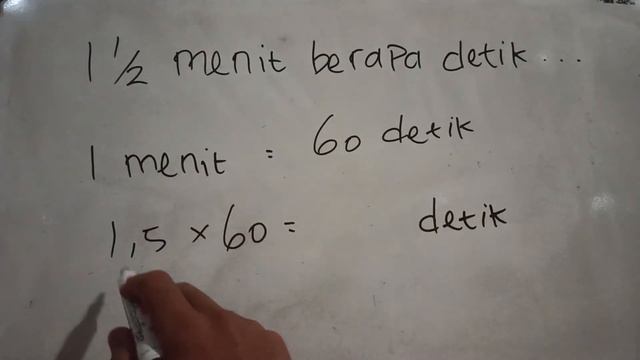 1 1/2 menit berapa detik ...
1 menit = 60 detik
1,5 × 60 = detik